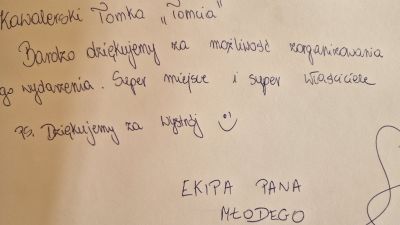 Kawalerski Tomka „Tomcia"
Bardzo dziękujemy za możliwość zorganizowania
go wydarzenia. Super miejsce i super właściciele
PS. Dziękujemy za wystrój
EKIPA PANA
MŁODEGO